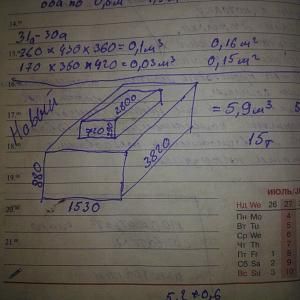 14.00
31а-30а
260 × 450 × 360 = 0,1 м³ 0,16 м²
170 × 360 × 420 = 0,03 м³ 0,15 м²
16.00
Новый
2800
720
= 5,9 м³
17.00
15т
18.00
3820
880
19.00
1530
20.00
21.00
ИЮЛЬ
Нд We 26 27
Пн Mo 4
Вт Tu 5
Ср We 6
Чт Th 7
Пт Fr 1 8
Сб Sa 2 9
Вс Su 3 10